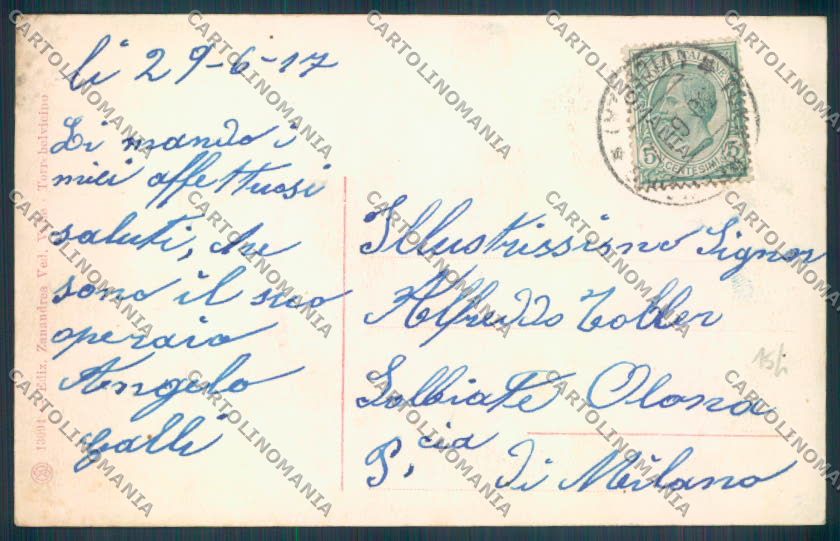 li 29-6-17
Li mando i
miei affettuosi
saluti, che
sono il suo
operaio
Angelo
Galli
Illustrissimo Signor
Alfredo Tobler
Solbiate Olona
P.cia di Milano
5 CENTESIMI 5
13691 Ediz. Zanandrea Ved. - Torrebelvicino
15/
CARTOLINOMANIA